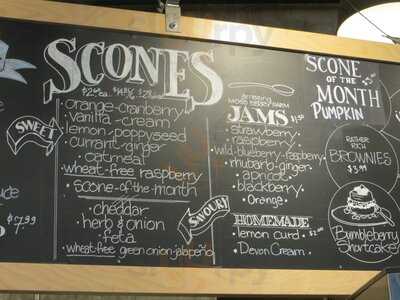 SCONES
$2.40 ea.
SWEET
orange-cranberry
vanilla-cream
lemon poppyseed
currant-ginger
oatmeal
wheat-free raspberry
scone-of-the-month
SAVOURY
cheddar
herb & onion
feta
wheat-free green onion-jalapeño
$7.99
MOSS BERRY FARM
JAMS
strawberry
raspberry
wild-blueberry-raspberry
rhubarb-ginger
apricot
blackberry
Orange
HOMEMADE
lemon curd
Devon Cream
SCONE
OF THE
MONTH
PUMPKIN
RATHER
RICH
BROWNIES
$3.99
Bumbleberry
Shortcake